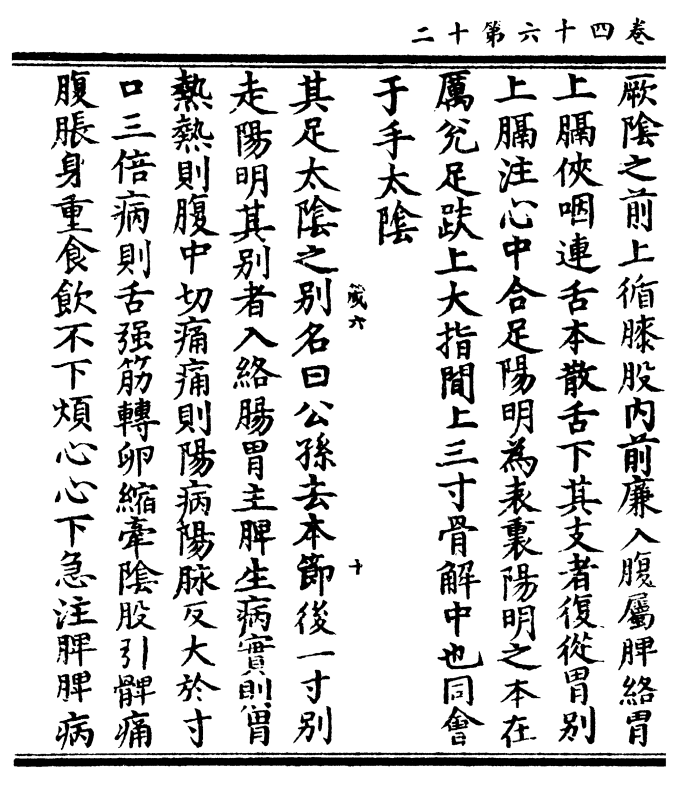 卷四十六第十二
厥陰之前上循膝股内前廉入腹屬脾絡胃
上膈俠咽連舌本散舌下其支者復從胃别
上膈注心中合足陽明為表裏陽明之本在
厲兊足趺上大指間上三寸骨解中也同會
于手太陰
其足太陰之别名曰公孫去本節後一寸别
走陽明其别者入絡腸胃主脾生病實則胃
熱熱則腹中切痛痛則陽病陽脉反大於寸
口三倍病則舌强筋轉卵縮牽陰股引髀痛
腹脹身重食飲不下煩心心下急注脾脾病
六
十